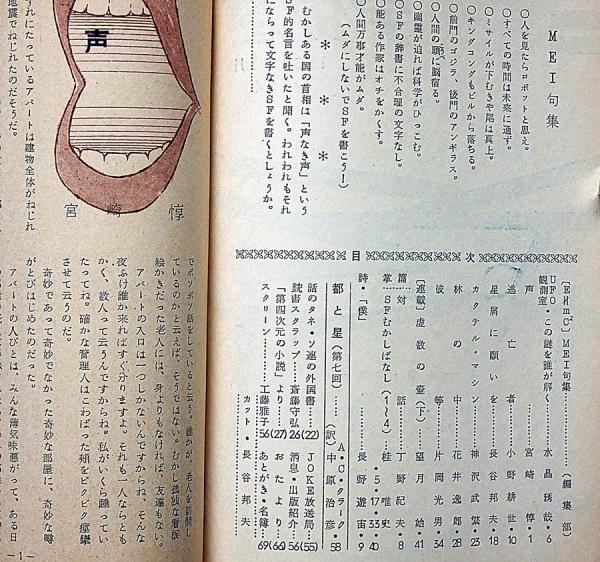 MEI句集
○人を見たらロボットと思え。
○すべての時間は未来に通ず。
○ミサイルが下むきや尾は真上。
○キングコングもビルから落ちる。
○前門のゴジラ、後門のアンギラス。
○人間の頭に脳宿る。
○幽霊が迫れば科学がひっこむ。
○SFの辞書に不合理の文字なし。
○能ある作家はオチをかくす。
○人間万事才能がムダ。
(ムダにしないでSFを書こう!)
* * *
むかしある国の首相は「声なき声」という
SF的名言を吐いたと聞く。われわれもそれ
にならって文字なきSFを書くとしようか。
目次
〔EHmC〕MEI句集……(編集部)
UFO・この謎を誰が解く
観測室……水晶琇哉・6
声……宮崎惇・1
逃亡者……小野耕世・10
星屑に願いを……長谷邦夫・18
カクテル・マシン……神沢武繁・23
林の中……花井逸郎・28
彼等……片岡光男・34
〔連載〕虚数の壺(下)……望月始・41
篇対話……丁野紀夫・8
掌SFむかしばなし(1〜4)……桂唯史・5・17・33・40
詩・「僕」……長野遊宙・9
都と星(第七回)……A・C・クラーク
(訳)中原治彦・58
話のタネ・ソ連の外国書……(22)
読書スクラップ……斎藤守弘(26)
「第四次元の小説」より……(27)
スクリーン……工藤雅子56
JOKE放送局……(55)
消息・出版紹介……56
おたより……(66)
あとがき・名簿……69
カット・長谷邦夫
声
宮崎惇
れにたっているアパートは建物全体がねじれ
地震でねじれたのだそうだ。
でボソボソ話をしていると云う。誰かが、老人を訪問し
ているのかと云えば、そうではない。むかし孤独な看板
絵かきだった老人には、身よりもなければ、友達もない。
アパートの入口は一つしかないんですからね、そんな
夜ふけ誰か来ればすぐ分りますよ。それも一人ならとも
かく、数人って云うんですからね。私がいくら睡ってい
たってね。確かな管理人はこわばった頬をピクピク痙攣
させて云うのだ。
奇妙であって奇妙でなかった奇妙な部屋に、奇妙な噂
がとびはじめたのだった。
アパートの人びとは、みんな薄気味悪がって、ある日
―1―